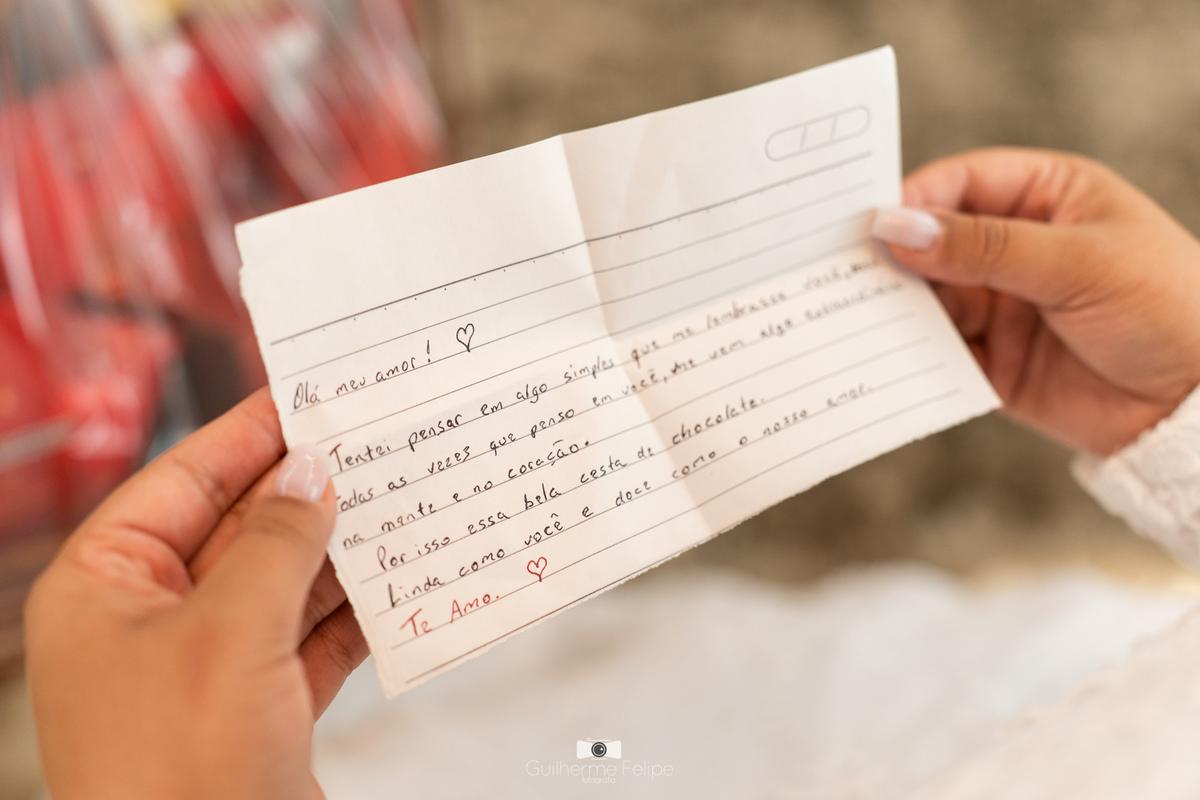 Olá meu amor! ♡
Tentei pensar em algo simples que me lembrasse você,
todas as vezes que penso em você, me vem algo extraordinário
na mente e no coração.
Por isso essa bela cesta de chocolate.
Linda como você e doce como o nosso amor.
Te Amo. ♡
Guilherme Felipe
fotografia